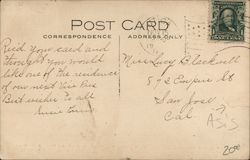 POST CARD
CORRESPONDENCE
ADDRESS ONLY
Recd your card and
thought you would
like one of the residence
of our next Vice Pres
Best wishes to all
Miss Lucy Blackwell
572 Empire St
San Jose
Cal